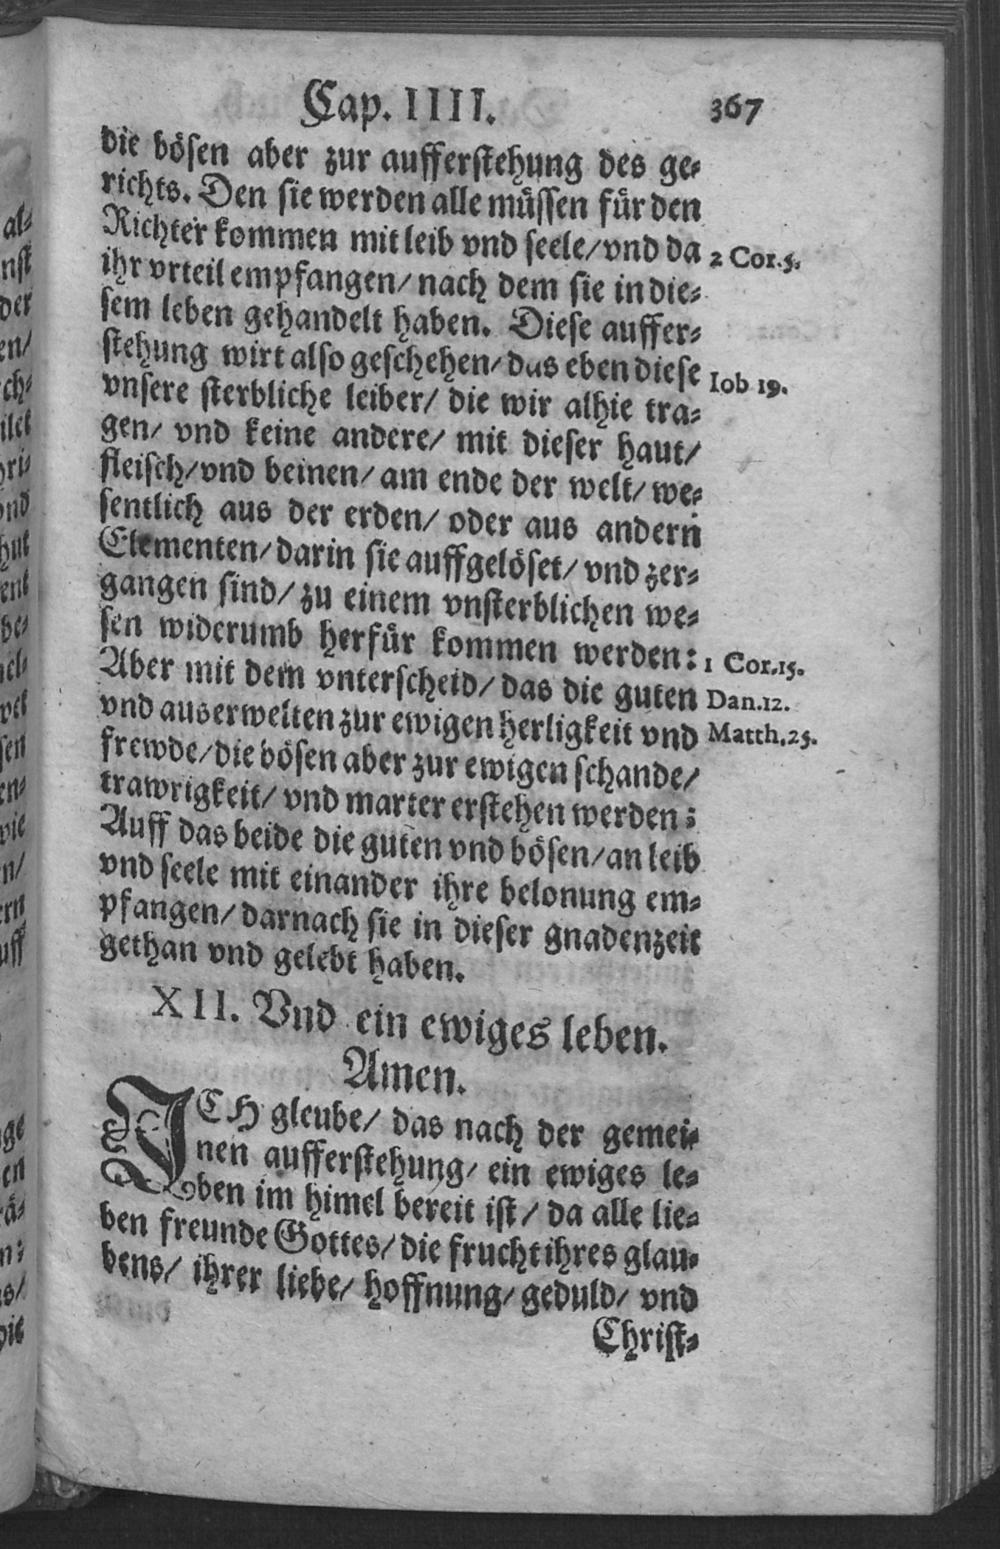 Cap. IIII. 367
die bösen aber zur aufferstehung des ge⸗
richts. Den sie werden alle müssen für den
Richter kommen mit leib vnd seele/ vnd da 2 Cor.5.
ihr vrteil empfangen/ nach dem sie in die⸗
sem leben gehandelt haben. Diese auffer⸗
stehung wirt also geschehen/ das eben diese Iob 19.
vnsere sterbliche leiber/ die wir alhie tra⸗
gen/ vnd keine andere/ mit dieser haut/
fleisch/ vnd beinen/ am ende der welt/ we⸗
sentlich aus der erden/ oder aus andern
Elementen/ darin sie auffgelöset/ vnd zer⸗
gangen sind/ zu einem vnsterblichen we⸗
sen widerumb herfür kommen werden: 1 Cor.15.
Aber mit dem vnterscheid/ das die guten Dan.12.
vnd auserwelten zur ewigen herligkeit vnd Matth.25.
frewde/ die bösen aber zur ewigen schande/
trawrigkeit/ vnd marter erstehen werden:
Auff das beide die guten vnd bösen/ an leib
vnd seele mit einander ihre belonung em⸗
pfangen/ darnach sie in dieser gnadenzeit
gethan vnd gelebt haben.
XII. Vnd ein ewiges leben.
Amen.
ICH gleube/ das nach der gemei⸗
nen aufferstehung/ ein ewiges le⸗
ben im himel bereit ist/ da alle lie⸗
ben freunde Gottes/ die frucht ihres glau⸗
bens/ ihrer liebe/ hoffnung/ geduld/ vnd
Christ⸗